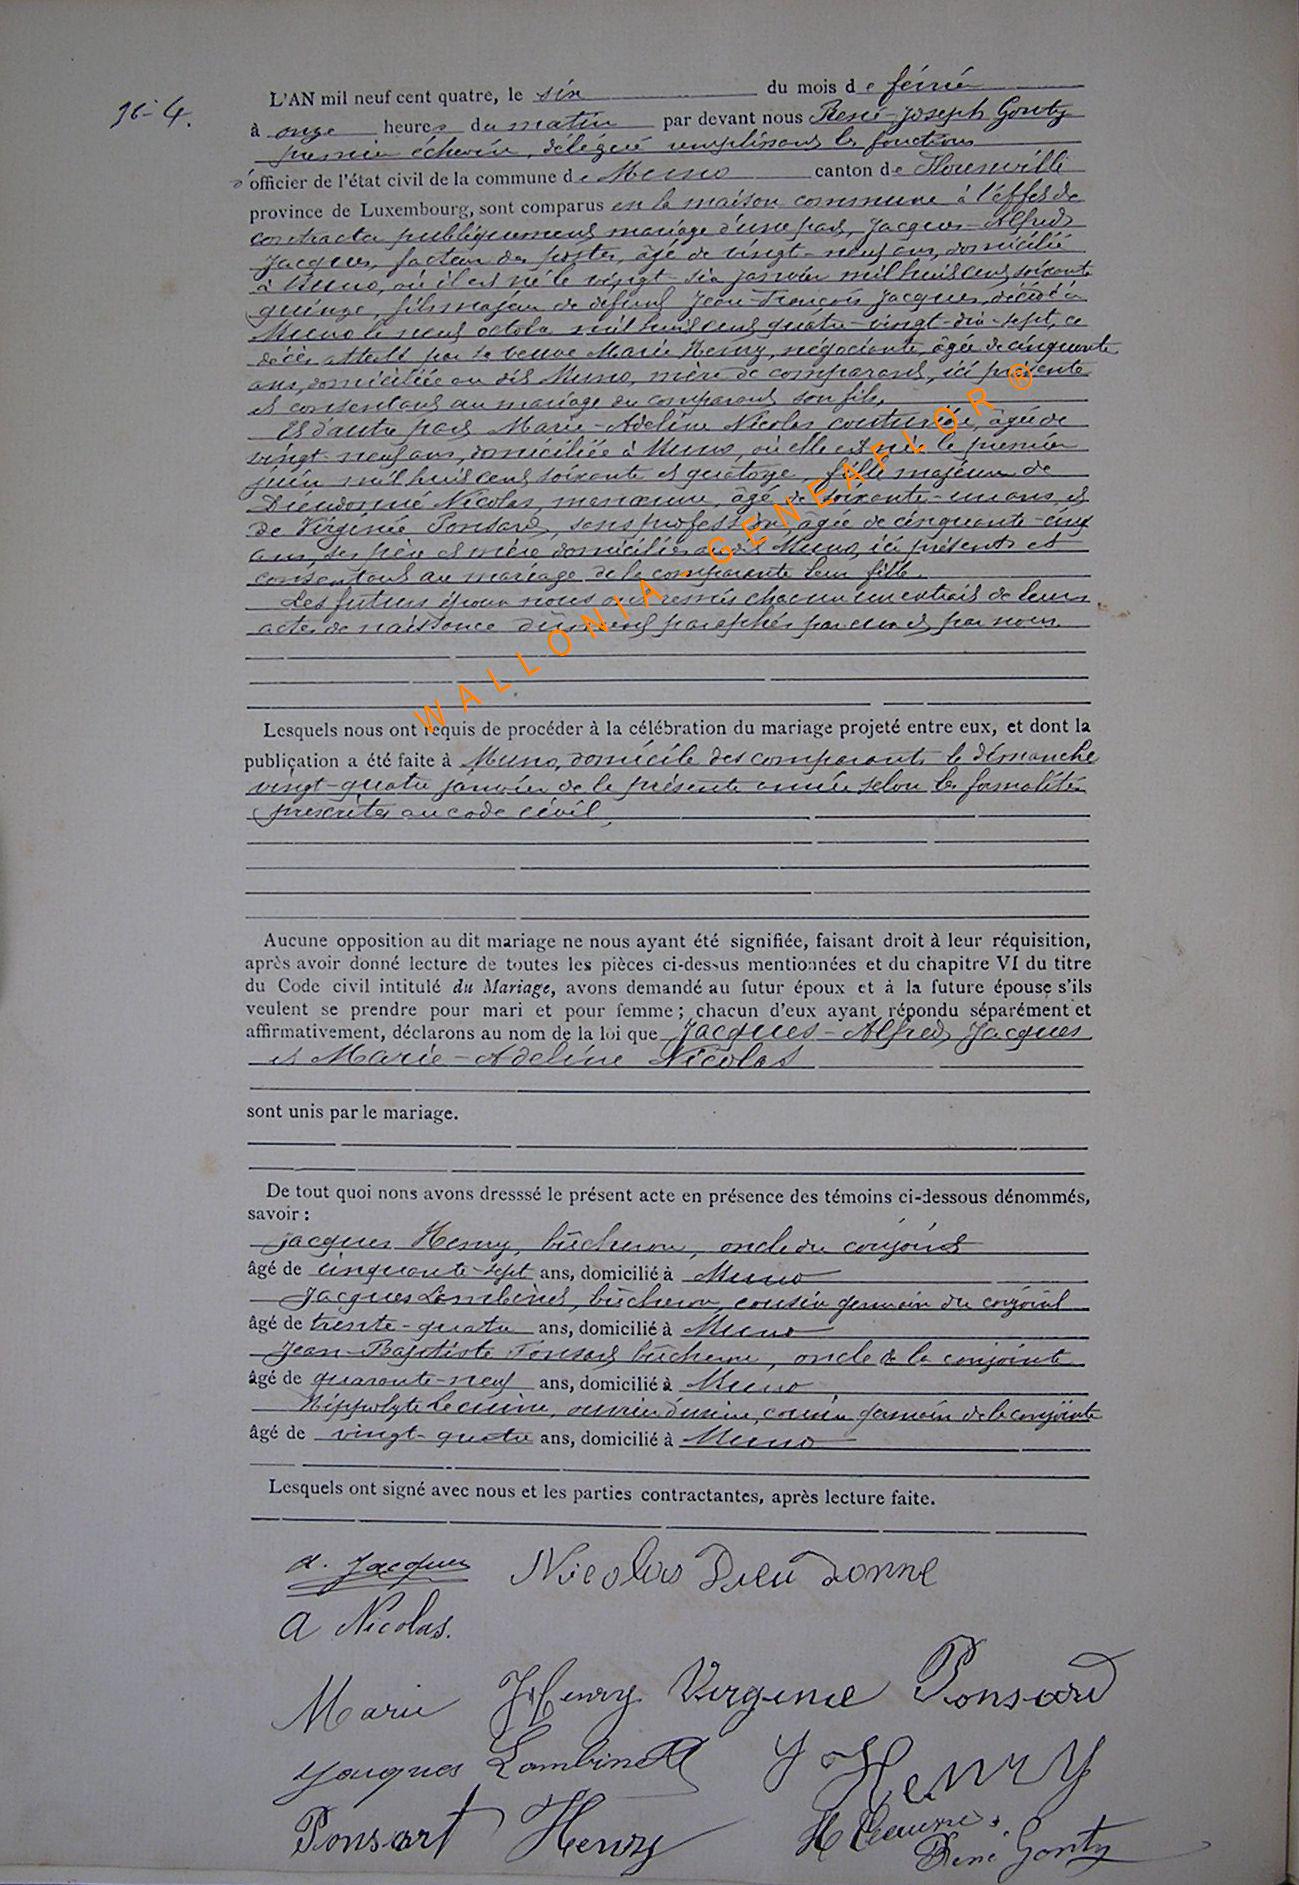 L'AN mil neuf cent quatre, le six du mois de février
à onze heures du matin par devant nous René-Joseph Gonty
premier échevin, délégué remplissant les fonctions
d'officier de l'état civil de la commune de Muno canton de Florenville
province de Luxembourg, sont comparus en la maison commune à l'effet de
contracter publiquement mariage d'une part, Jacques-Alfred
Jacques, facteur des postes, âgé de vingt-neuf ans, domicilié
à Muno, où il est né le vingt-six janvier mil huit cent soixante
quinze, fils majeur de défunt Jean-François Jacques, décédé à
Muno le neuf octobre mil huit cent quatre-vingt-dix-sept, ce
décès attesté par sa veuve Marie Henry, négociante, âgée de cinquante
ans, domiciliée au dit Muno, mère du comparant, ici présente
et consentant au mariage du comparant son fils.
Et d'autre part Marie-Adeline Nicolas couturière, âgée de
vingt-neuf ans, domiciliée à Muno, où elle est née le premier
juin mil huit cent soixante et quatorze, fille majeure de
Dieudonné Nicolas, manœuvre, âgé de soixante-un ans, et
de Virginie Ponsard, sans profession, âgée de cinquante-cinq
ans, ses père et mère domiciliés au dit Muno, ici présents et
consentant au mariage de la comparante leur fille.
Les futurs époux nous ont remis chacun un extrait de leurs
actes de naissance dûment paraphés par eux et par nous
Lesquels nous ont requis de procéder à la célébration du mariage projeté entre eux, et dont la
publication a été faite à Muno, domicile des comparants le dimanche
vingt-quatre janvier de la présente année selon les formalités
prescrites au code civil,
Aucune opposition au dit mariage ne nous ayant été signifiée, faisant droit à leur réquisition,
après avoir donné lecture de toutes les pièces ci-dessus mentionnées et du chapitre VI du titre
du Code civil intitulé du Mariage, avons demandé au futur époux et à la future épouse s'ils
veulent se prendre pour mari et pour femme ; chacun d'eux ayant répondu séparément et
affirmativement, déclarons au nom de la loi que Jacques-Alfred Jacques
et Marie-Adeline Nicolas
sont unis par le mariage.
De tout quoi nons avons dresssé le présent acte en présence des témoins ci-dessous dénommés,
savoir :
Jacques Henry, bûcheron, oncle du conjoint
âgé de cinquante-sept ans, domicilié à Muno
Jacques Lambinet, bûcheron, cousin germain du conjoint
âgé de trente-quatre ans, domicilié à Muno
Jean-Baptiste Ponsard bûcheron, oncle de la conjointe
âgé de quarante-neuf ans, domicilié à Muno
Hippolyte Lecuivre, ouvrier d'usine, cousin germain de la conjointe
âgé de vingt-quatre ans, domicilié à Muno
Lesquels ont signé avec nous et les parties contractantes, après lecture faite.
A. Jacques Nicolas Dieudonne
A Nicolas.
Marie Henry Virginie Ponsard
Jacques Lambinet J Henry
Ponsart Henry H
René Gonty
WALLONIA - GENEAFLOR ®